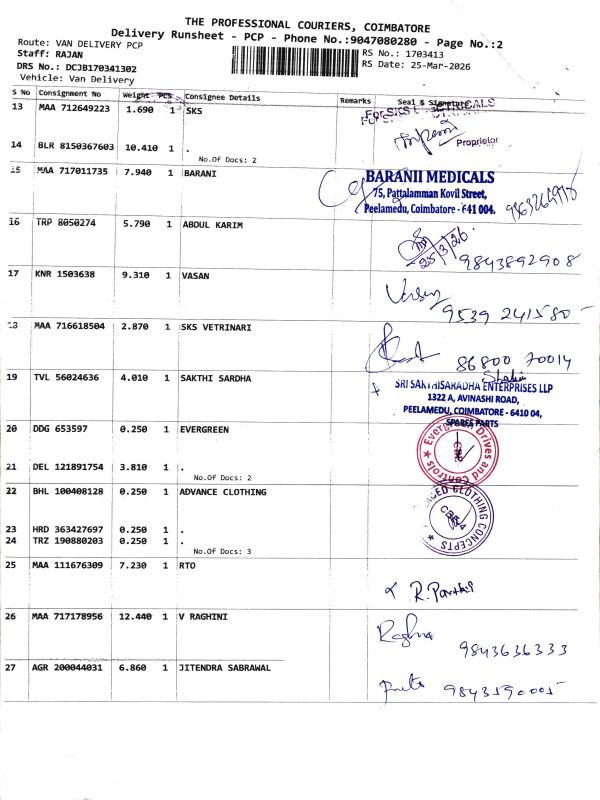 THE PROFESSIONAL COURIERS, COIMBATORE
Delivery Runsheet - PCP - Phone No.:9047080280 - Page No.:2
Route: VAN DELIVERY PCP
RS No.: 1703413
Staff: RAJAN
RS Date: 25-Mar-2026
DRS No.: DCJB170341302
Vehicle: Van Delivery
S No Consignment No Weight PCS Consignee Details Remarks Seal & Signature
13 MAA 712649223 1.690 1 SKS
For SKS
Proprietor
14 BLR 8150367603 10.410 1 .
No.Of Docs: 2
15 MAA 717011735 7.940 1 BARANI
BARANII MEDICALS
75, Pattalamman Kovil Street,
Peelamedu, Coimbatore - 641 004.
16 TRP 8050274 5.790 1 ABDUL KARIM
25/3/26
9843892908
17 KNR 1503638 9.310 1 VASAN
9539241580
18 MAA 716618504 2.870 1 SKS VETRINARI
86800 70014
19 TVL 56024636 4.010 1 SAKTHI SARDHA
SRI SAKTHISARADHA ENTERPRISES LLP
1322 A, AVINASHI ROAD,
PEELAMEDU, COIMBATORE - 6410 04,
SPARES PARTS
20 DDG 653597 0.250 1 EVERGREEN
Evergreen Drives and Controls
21 DEL 121891754 3.810 1 .
No.Of Docs: 2
22 BHL 100408128 0.250 1 ADVANCE CLOTHING
CLOTHING CONCEPTS
23 HRD 363427697 0.250 1 .
24 TRZ 190880203 0.250 1 .
No.Of Docs: 3
25 MAA 111676309 7.230 1 RTO
26 MAA 717178956 12.440 1 V RAGHINI
9843636333
27 AGR 200044031 6.860 1 JITENDRA SABRAWAL
9843590005